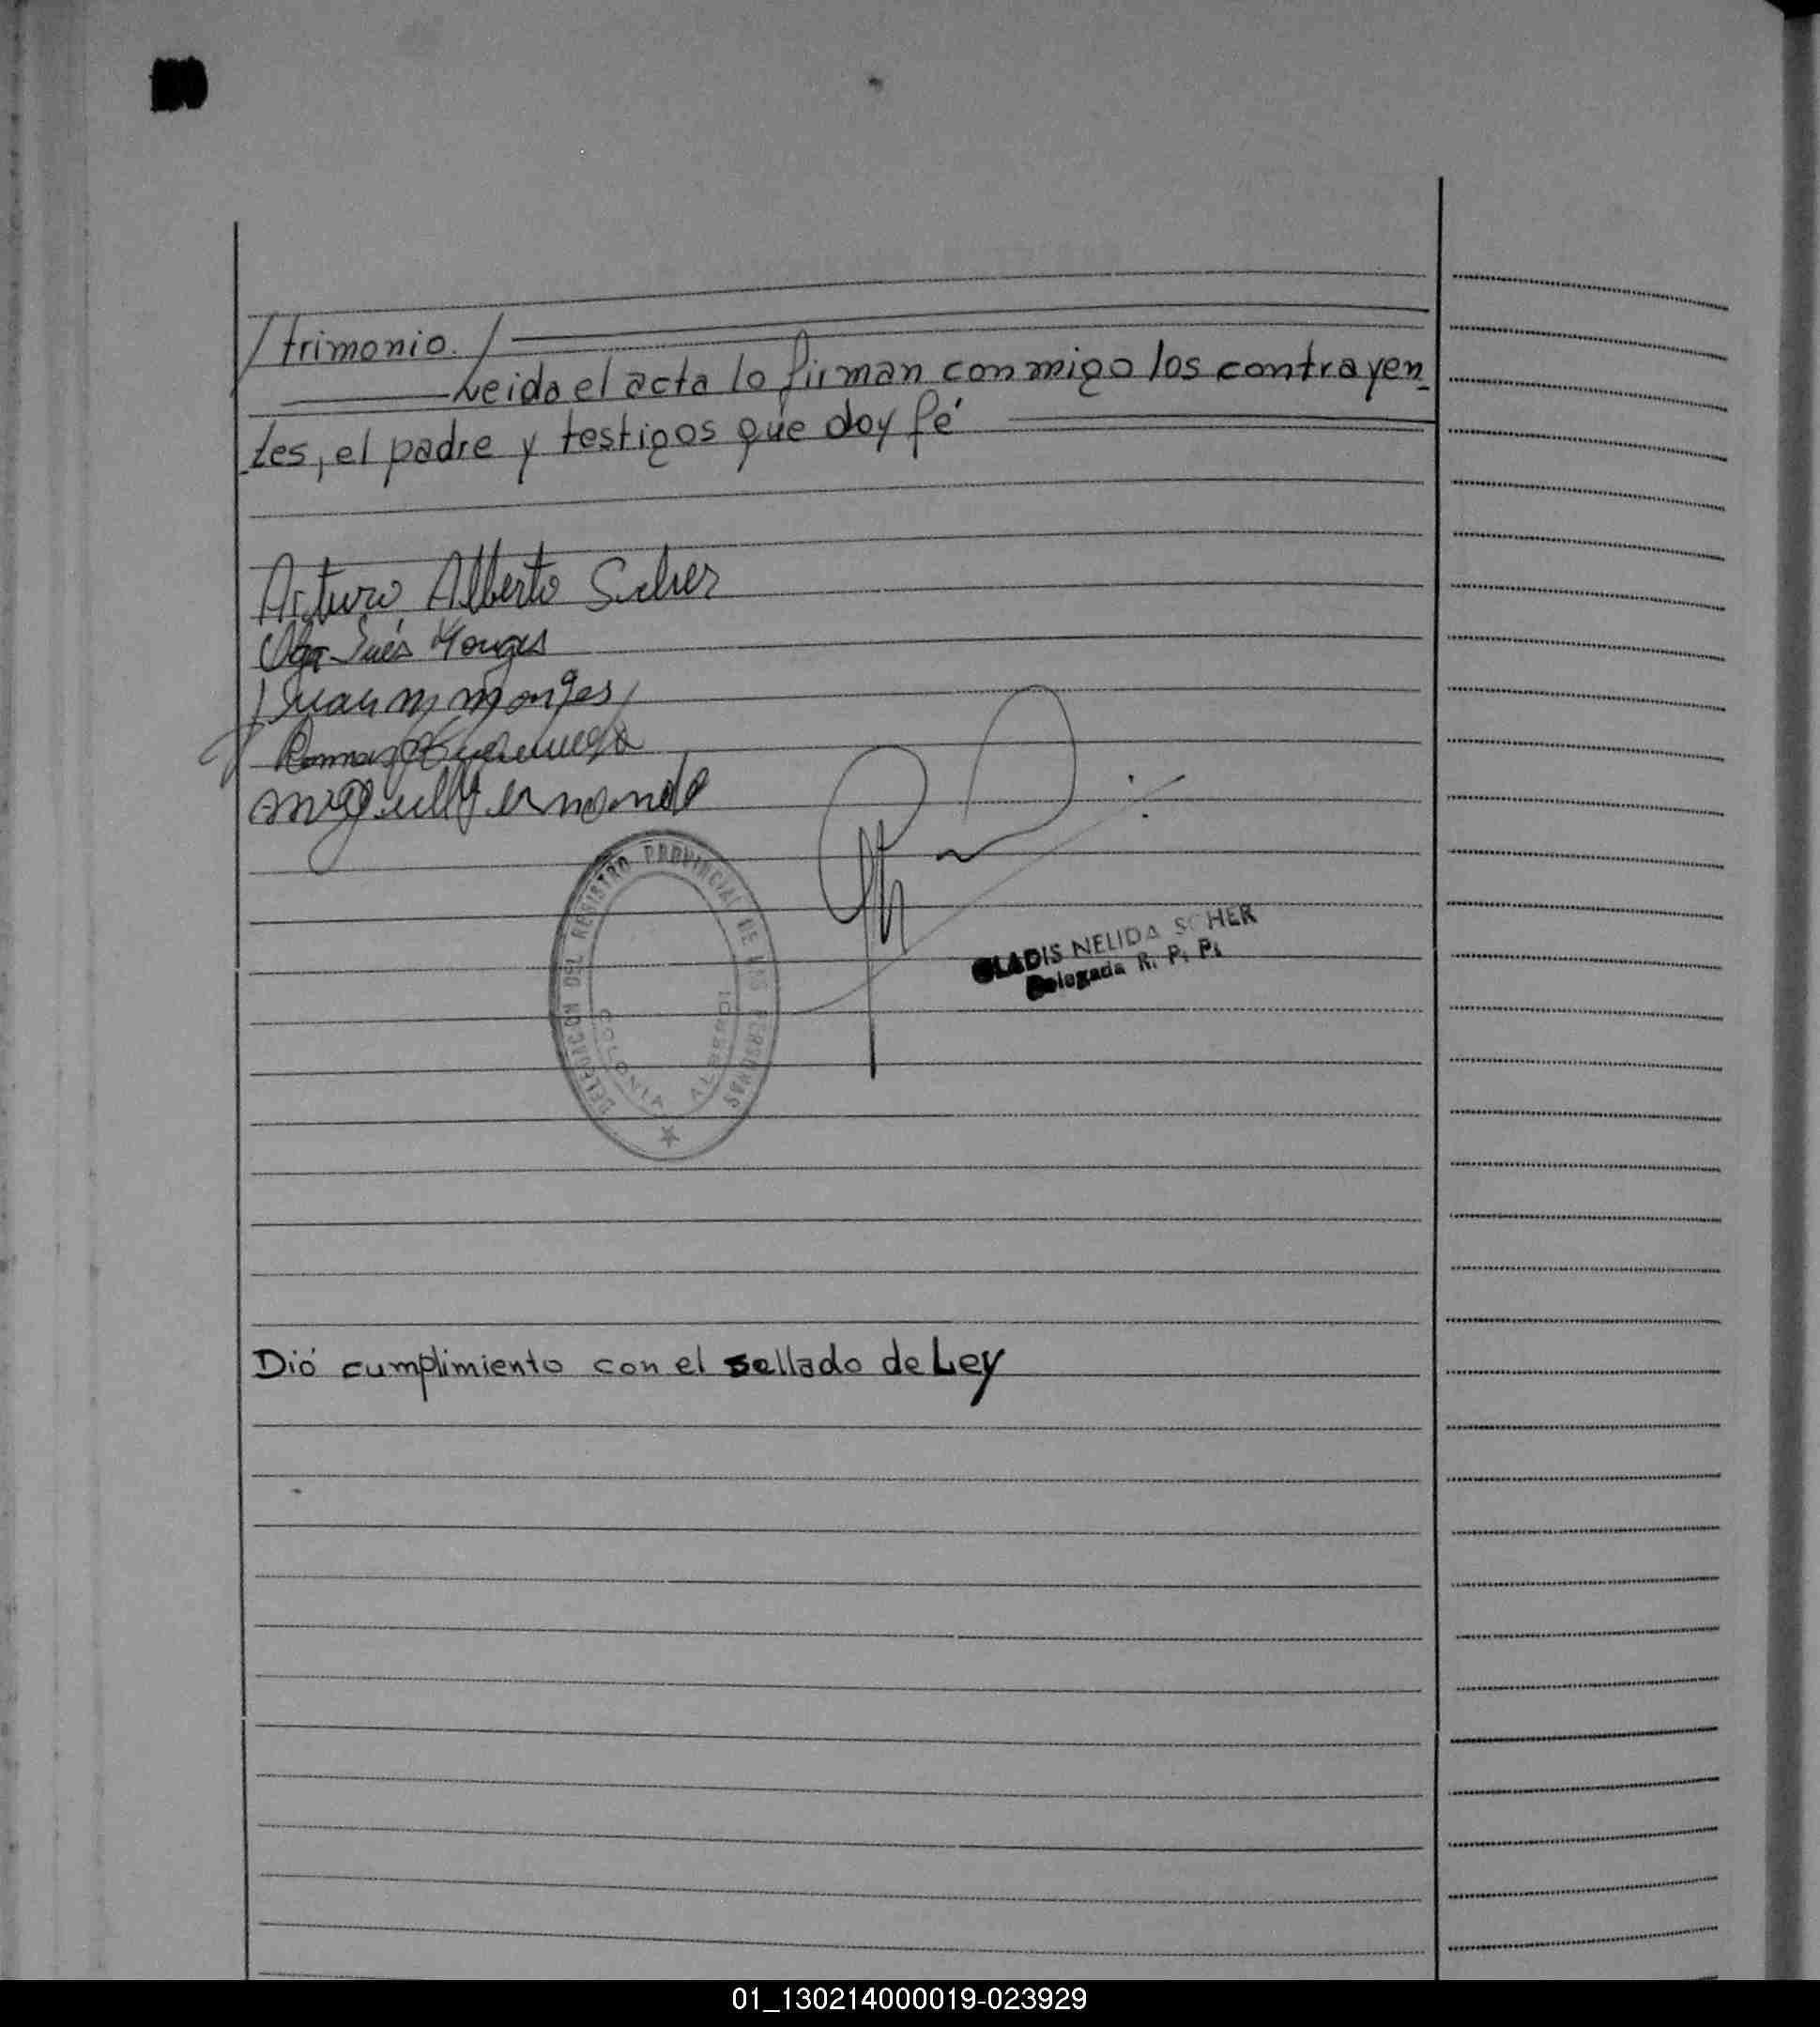 /trimonio./
Leida el acta lo firman conmigo los contrayen_
tes, el padre y testigos que doy fé
Arturo Alberto Scher
Olga Inés Monges
Juan M Monges
Ramon
Miguel
DELEGACION DEL REGISTRO PROVINCIAL DE LAS PERSONAS
COLONIA ALBERDI
GLADIS NELIDA SCHER
Delegada R. P. P.
Dió cumplimiento con el sellado de Ley
01_130214000019-023929